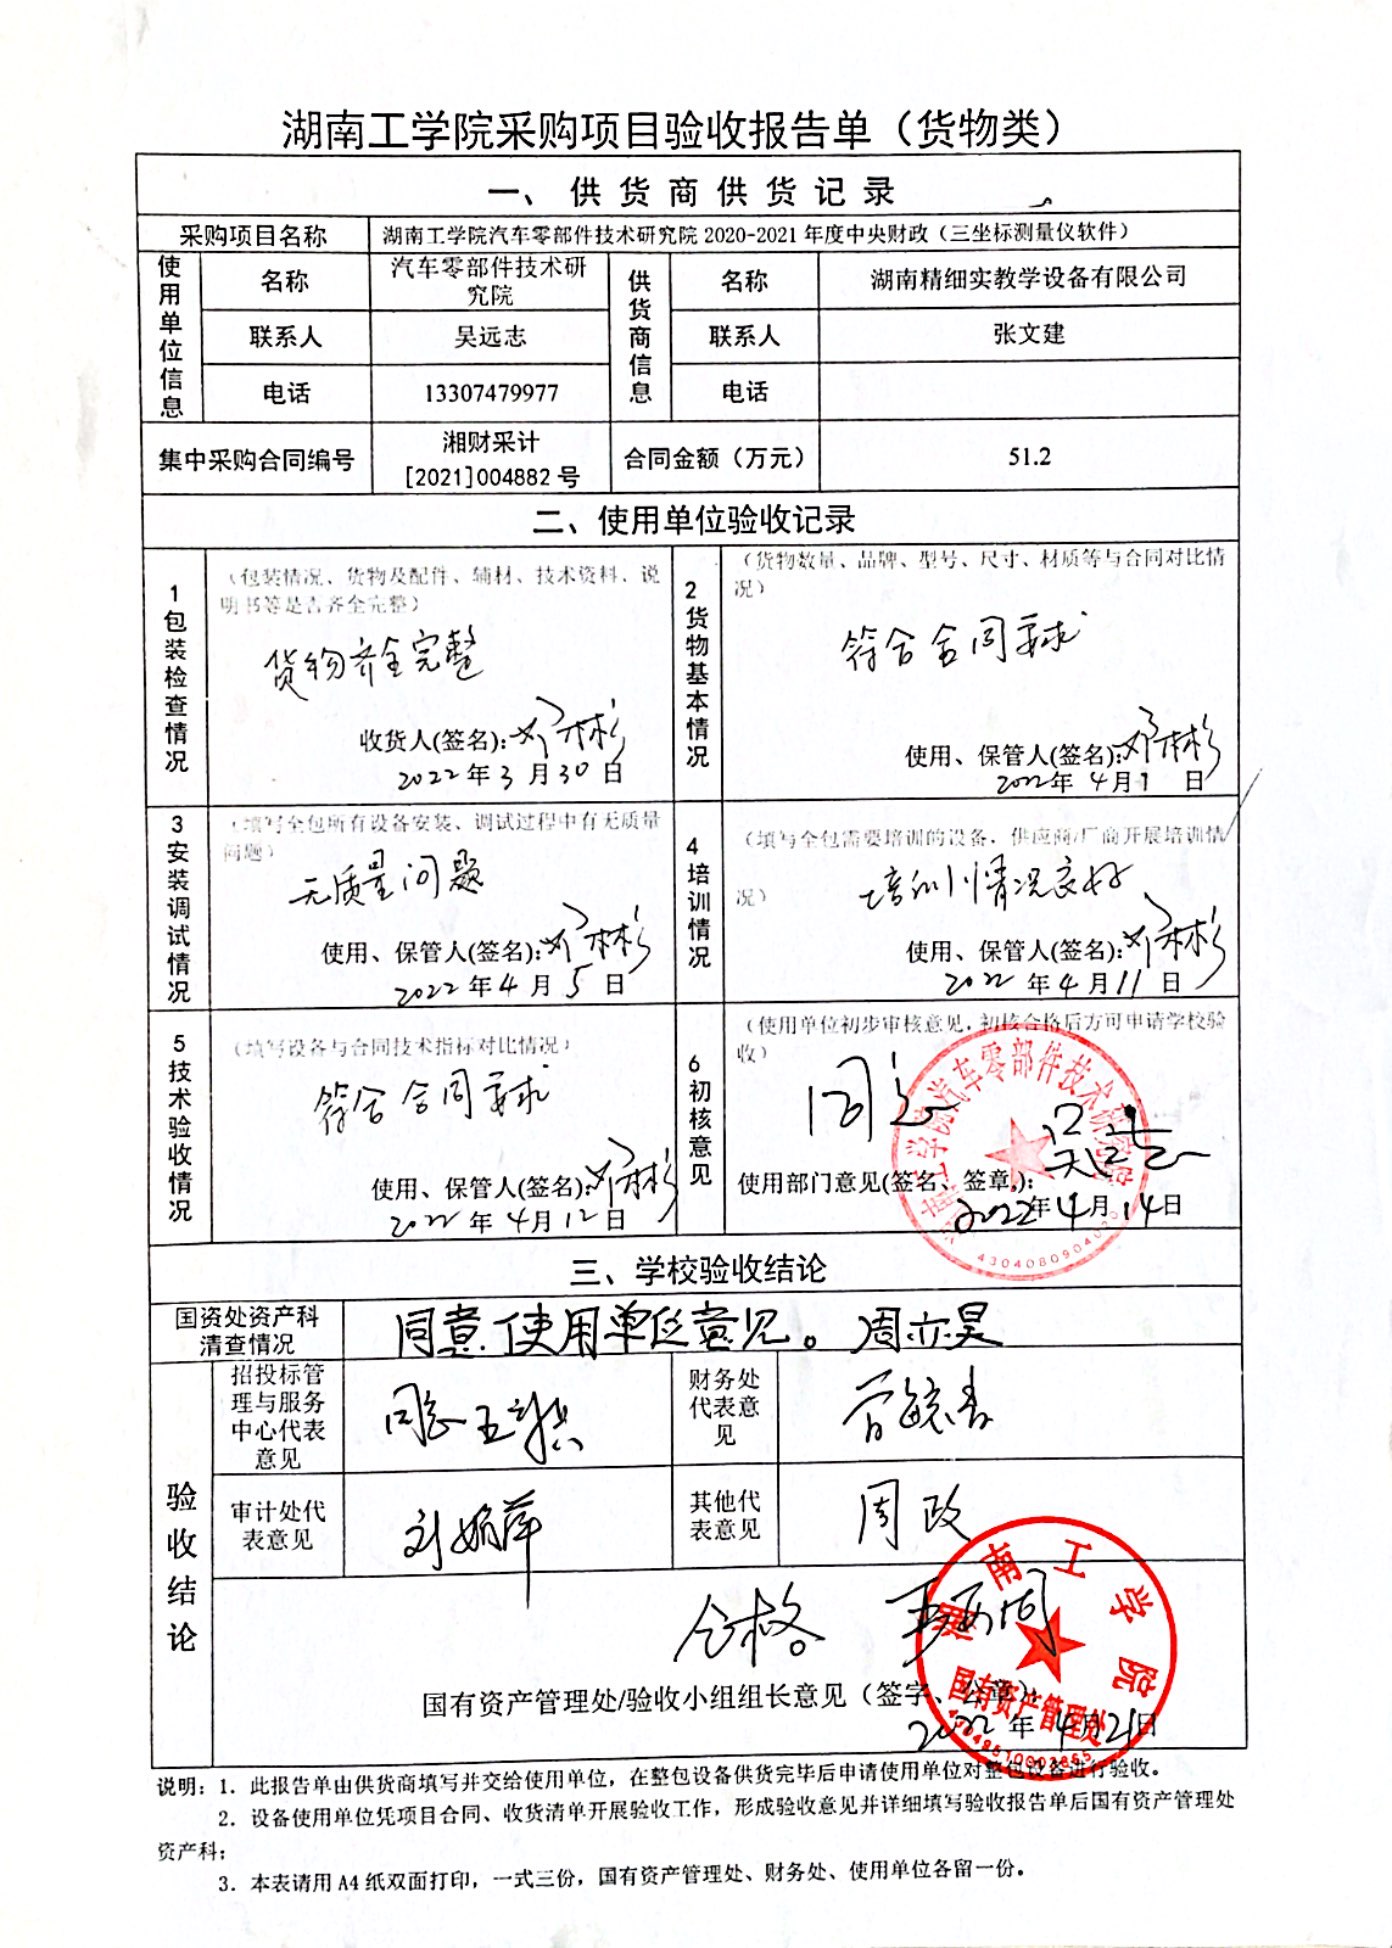 湖南工学院采购项目验收报告单（货物类）
一、供货商供货记录
采购项目名称 湖南工学院汽车零部件技术研究院 2020-2021 年度中央财政（三坐标测量仪软件）
使用单位信息 名称 汽车零部件技术研究院 供货商信息 名称 湖南精细实教学设备有限公司
联系人 吴远志 联系人 张文建
电话 13307479977 电话
集中采购合同编号 湘财采计[2021]004882 号 合同金额（万元） 51.2
二、使用单位验收记录
1 包装检查情况
（包装情况、货物及配件、辅材、技术资料、说
明书等是否齐全完整）
货物齐全完整
收货人(签名):
2022 年 3 月 30 日
2 货物基本情况
（货物数量、品牌、型号、尺寸、材质等与合同对比情
况）
符合合同要求
使用、保管人(签名):
2022年 4月1 日
3 安装调试情况
（填写全包所有设备安装、调试过程中有无质量
问题）
无质量问题
使用、保管人(签名):
2022 年 4 月 5 日
4 培训情况
（填写全包需要培训的设备，供应商/厂商开展培训情
况）
培训情况良好
使用、保管人(签名):
2022 年 4 月 11 日
5 技术验收情况
（填写设备与合同技术指标对比情况）
符合合同要求
使用、保管人(签名):
2022 年 4月 12 日
6 初核意见
（使用单位初步审核意见，初核合格后方可申请学校验
收）
同意
使用部门意见(签名、签章):
2022年 4月 14日
湖南工学院汽车零部件技术研究院
三、学校验收结论
国资处资产科清查情况 同意使用单位意见。周亦昊
验收结论
招投标管理与服务中心代表意见 同意
财务处代表意见
审计处代表意见 刘娟萍
其他代表意见 周政
合格
国有资产管理处/验收小组组长意见（签字、公章）:
2022 年 4月21日
湖南工学院
国有资产管理处
说明：1．此报告单由供货商填写并交给使用单位，在整包设备供货完毕后申请使用单位对整包设备进行验收。
2．设备使用单位凭项目合同、收货清单开展验收工作，形成验收意见并详细填写验收报告单后国有资产管理处
资产科；
3．本表请用 A4 纸双面打印，一式三份，国有资产管理处、财务处、使用单位各留一份。